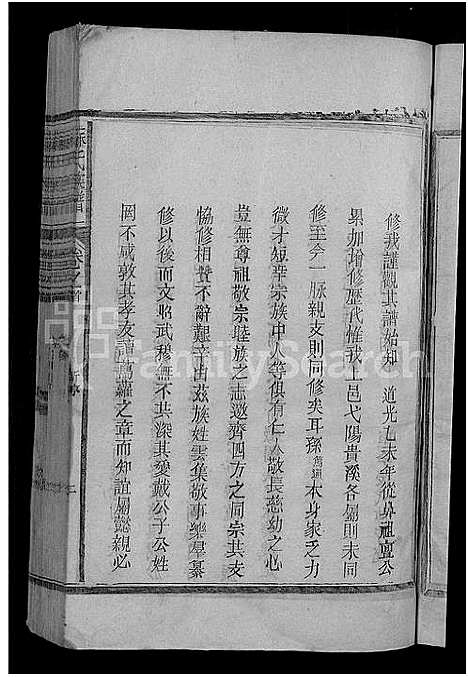 修我謹觀其譜始知 道光乙未年從外祖亶公
累加增修歷代惟我上邑弋陽貴溪各屬則未同
修至今一脉親支則同修矣耳孫萬通本身家乏力
微才短幸宗族中人等俱有仁人敬長慈幼之心
豈無尊祖敬宗睦族之志邀齊四方之同宗其支
恊修相贊不辭艱辛由茲族姓雲集敬事樂羣纂
修以後而文昭武穆無不共深其愛戴公子公姓
罔不咸敦其孝友譜蔦蘿之章而知誼屬懿親必
FamilySearch